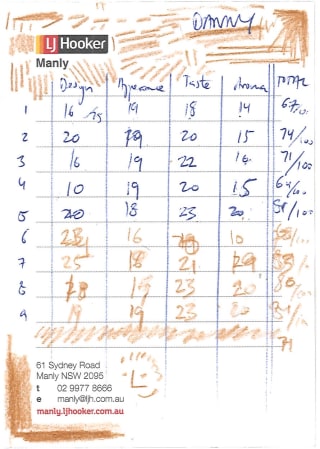 DANNY
LJ Hooker
Manly
Design Apperance Taste Aroma TOTAL
1 16 /25 19 18 14 67/100
2 20 19 20 15 74/100
3 16 19 22 71/100
4 10 19 20 15 64/100
5 20 18 23 20 /100
6 16 10
7 25 18 21
8 23 20
9 19 23 20
71
61 Sydney Road
Manly NSW 2095
t 02 9977 8666
e manly@ljh.com.au
manly.ljhooker.com.au